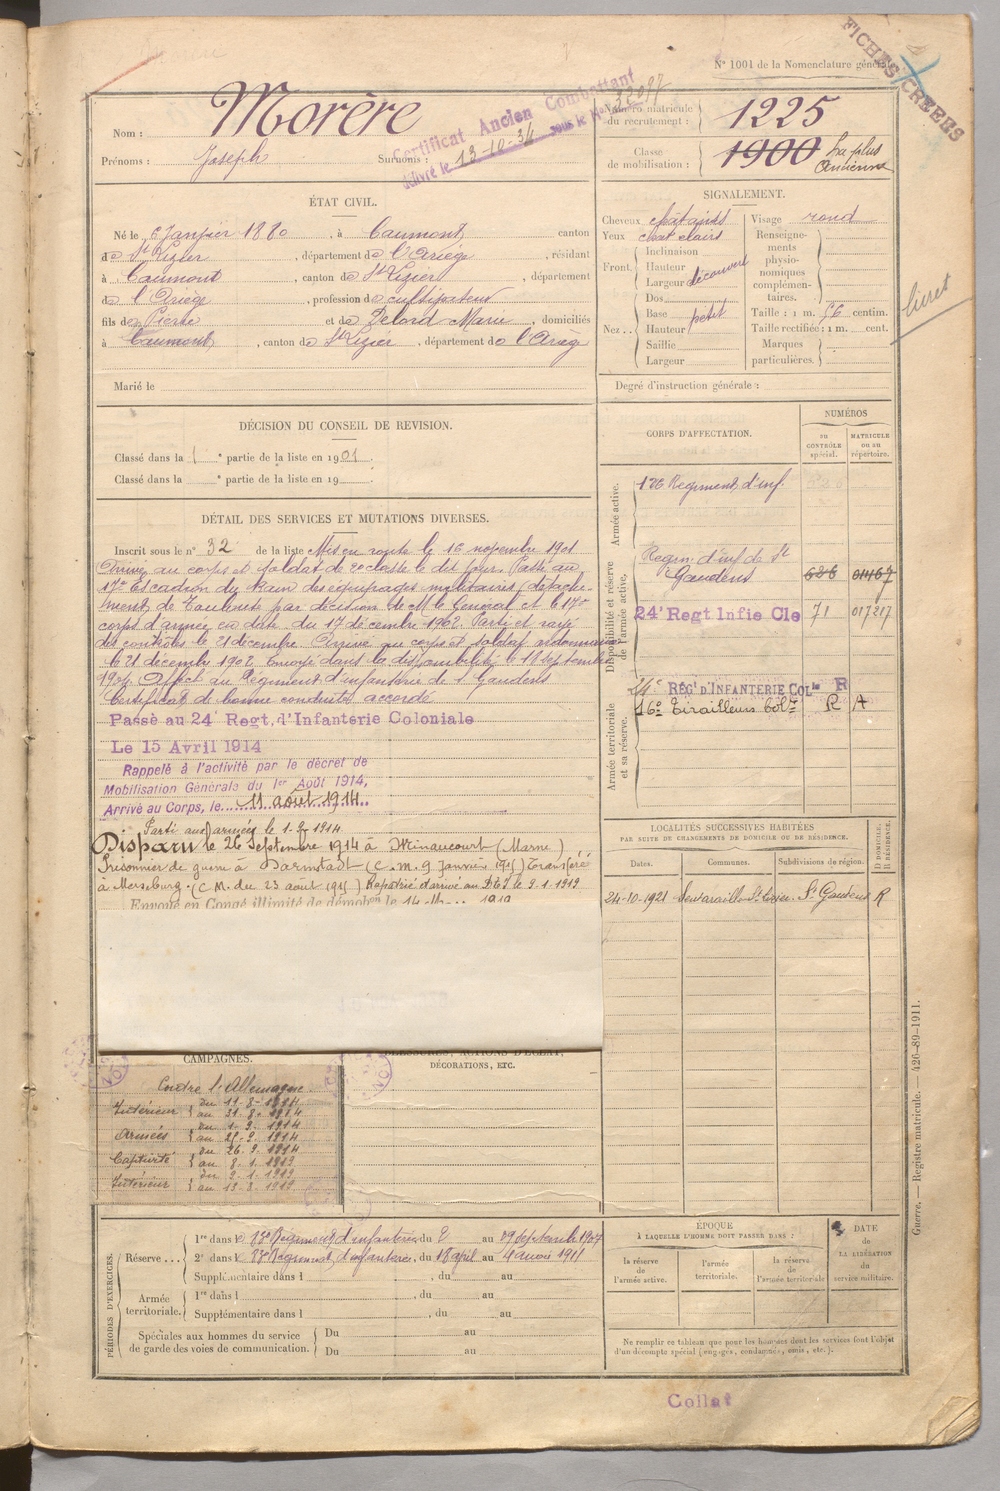 N° 1001 de la Nomenclature générale
FICHES CREEES
Nom : Morère
Prénoms : Joseph Surnoms :
Certificat Ancien Combattant
délivré le 13-10-34 sous le N° 32097
Numéro matricule du recrutement : 1225
Classe de mobilisation : 1900 La plus Ancienne
ÉTAT CIVIL.
Né le 6 Janvier 1880, à Caumont, canton
de St Lizier, département de l'Ariège, résidant
à Caumont, canton de St Lizier, département
de l'Ariège, profession de cultivateur
fils de Pierre et de Delord Marie, domiciliés
à Caumont, canton de St Lizier, département de l'Ariège
Marié le
SIGNALEMENT.
Cheveux châtains
Yeux chat clairs
Front Inclinaison
Hauteur
Largeur découvert
Nez Dos
Base petit
Hauteur
Saillie
Largeur
Visage rond
Renseignements physionomiques complémentaires.
Taille : 1 m. 56 centim.
Taille rectifiée : 1 m. cent.
Marques particulières.
livret
Degré d'instruction générale :
DÉCISION DU CONSEIL DE REVISION.
Classé dans la 1e partie de la liste en 1901.
Classé dans la e partie de la liste en 19
CORPS D'AFFECTATION.
NUMÉROS
AU CONTRÔLE spécial.
MATRICULE ou au répertoire.
Armée active.
126 Régiment d'inf.
Disponibilité et réserve de l'armée active.
Régim. d'inf de St Gaudens 626 01467
24e Regt Infie Cle 71 017217
Armée territoriale et sa réserve.
24e REGt D'INFANTERIE COLle R
16e Tirailleurs Col. R A
DÉTAIL DES SERVICES ET MUTATIONS DIVERSES.
Inscrit sous le n° 32 de la liste Mis en route le 16 novembre 1901
Arrivé au corps et soldat de 2e classe le dit jour. Passé au
17me Escadron du train des équipages militaires (détache-
ment de Toulouse par décision de M. le Général et le 17me
corps d'armée en date du 17 décembre 1902. Parti et rayé
des contrôles le 21 décembre. Arrivé au corps et soldat
le 21 décembre 1902. Envoyé dans la disponibilité le 18 septembre
1904. Affecté au Régiment d'infanterie de St Gaudens
Certificat de bonne conduite accordé
Passé au 24e Regt. d'Infanterie Coloniale
Le 15 Avril 1914
Rappelé à l'activité par le décret de
Mobilisation Générale du 1er Août 1914,
Arrivé au Corps, le 11 août 1914
Parti aux armées le 1-9-1914
Disparu le 26 Septembre 1914 à Minaucourt (Marne)
Prisonnier de guerre à Darmstadt (C. M. 9 Janvier 1915) Transféré
à Merseburg. (C. M. du 23 août 1915) Rapatrié d'arrivé au D.I.T le 9-1-1919
Envoyé en Congé illimité de démob. le 14 1919
LOCALITÉS SUCCESSIVES HABITÉES
PAR SUITE DE CHANGEMENTS DE DOMICILE OU DE RÉSIDENCE.
Dates. Communes. Subdivisions de région. D DOMICILE. R RÉSIDENCE.
24-10-1921 St Lizier. St Gaudens R
CAMPAGNES.
Contre l'Allemagne.
Intérieur du 11-8-1914 au 31-8-1914
Armées du 1-9-1914 au 25-9-1914
Captivité du 26-9-1914 au 8-1-1919
Intérieur du 9-1-1919 au 13-3-1919
BLESSURES, ACTIONS D'ÉCLAT,
DÉCORATIONS, ETC.
PÉRIODES D'EXERCICES.
Réserve 1re dans le 83e Régiment d'infanterie du 2 au 29 septembre 1907
2e dans le 83e Régiment d'infanterie, du 18 avril au 4 mai 1911
Supplémentaire dans l , du au
Armée territoriale. 1re dans l , du au
Supplémentaire dans l , du au
Spéciales aux hommes du service de garde des voies de communication. Du au
Du au
ÉPOQUE
À LAQUELLE L'HOMME DOIT PASSER DANS :
la réserve de l'armée active.
l'armée territoriale.
la réserve de l'armée territoriale
DATE DE LA LIBÉRATION du service militaire.
Ne remplir ce tableau que pour les hommes dont les services font l'objet
d'un décompte spécial (engagés, condamnés, omis, etc.).
Guerre. — Registre matricule. — 426-89-1911.
Collat